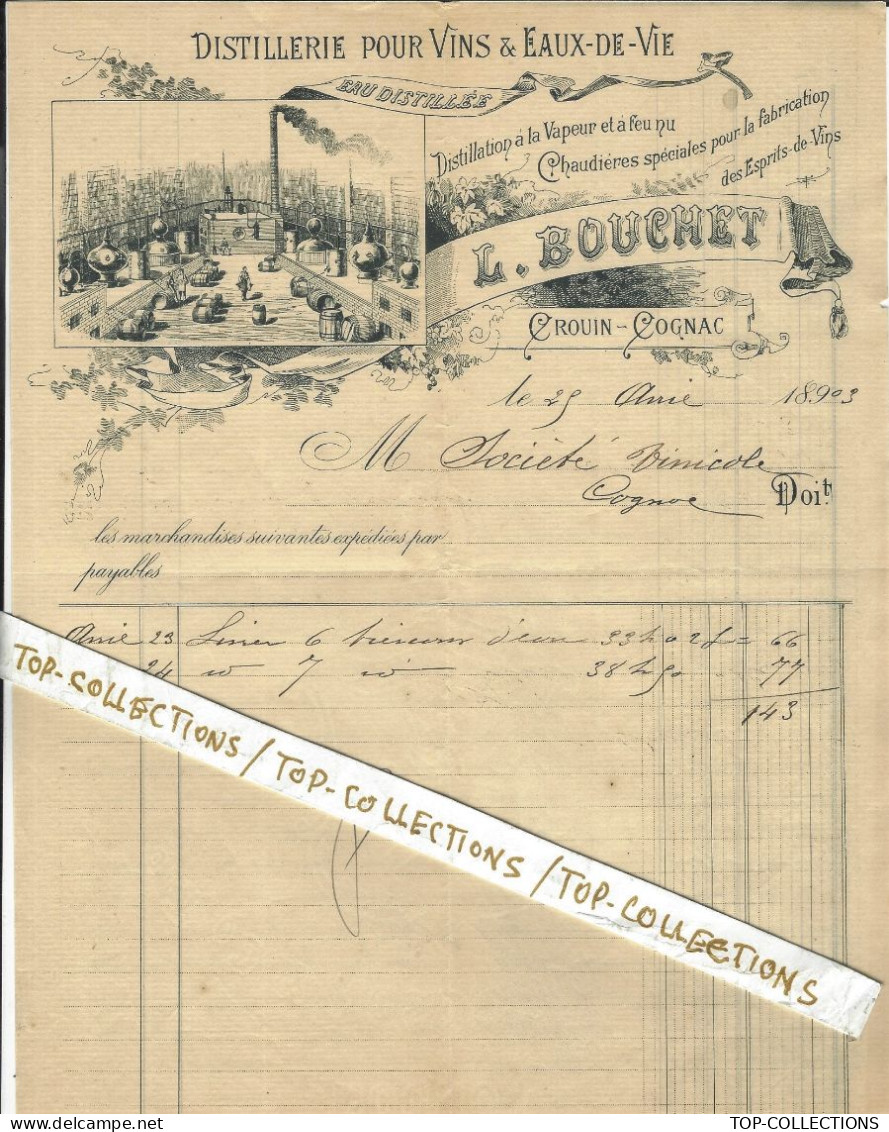 DISTILLERIE POUR VINS & EAUX-DE-VIE
EAU DISTILLÉE
Distillation à la Vapeur et à feu nu
Chaudières spéciales pour la fabrication
des Esprits-de-Vins
L. BOUCHET
CROUIN-COGNAC
le 25 1903
M Société Vinicole
Cognac Doit
les marchandises suivantes expédiées par
payables
23 6 33 h 2 f = 66
24 7 38 h 50 77
143
TOP-COLLECTIONS / TOP-COLLECTIONS / TOP-COLLECTIONS
TOP-COLLECTIONS